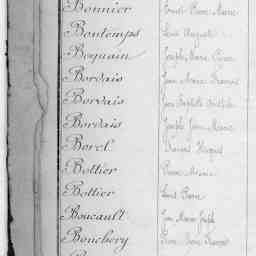 Bonnier Pierre Marie
Bontemps Louis Auguste
Boquain Joseph Marie Pierre
Bordais Jean Marie François
Bordais Jean Baptiste
Bordais Joseph Jean Marie
Borel François
Bottier Pierre Marie
Bottier Louis Pierre
Boucault Jean Marie Joseph
Bouchery Pierre François